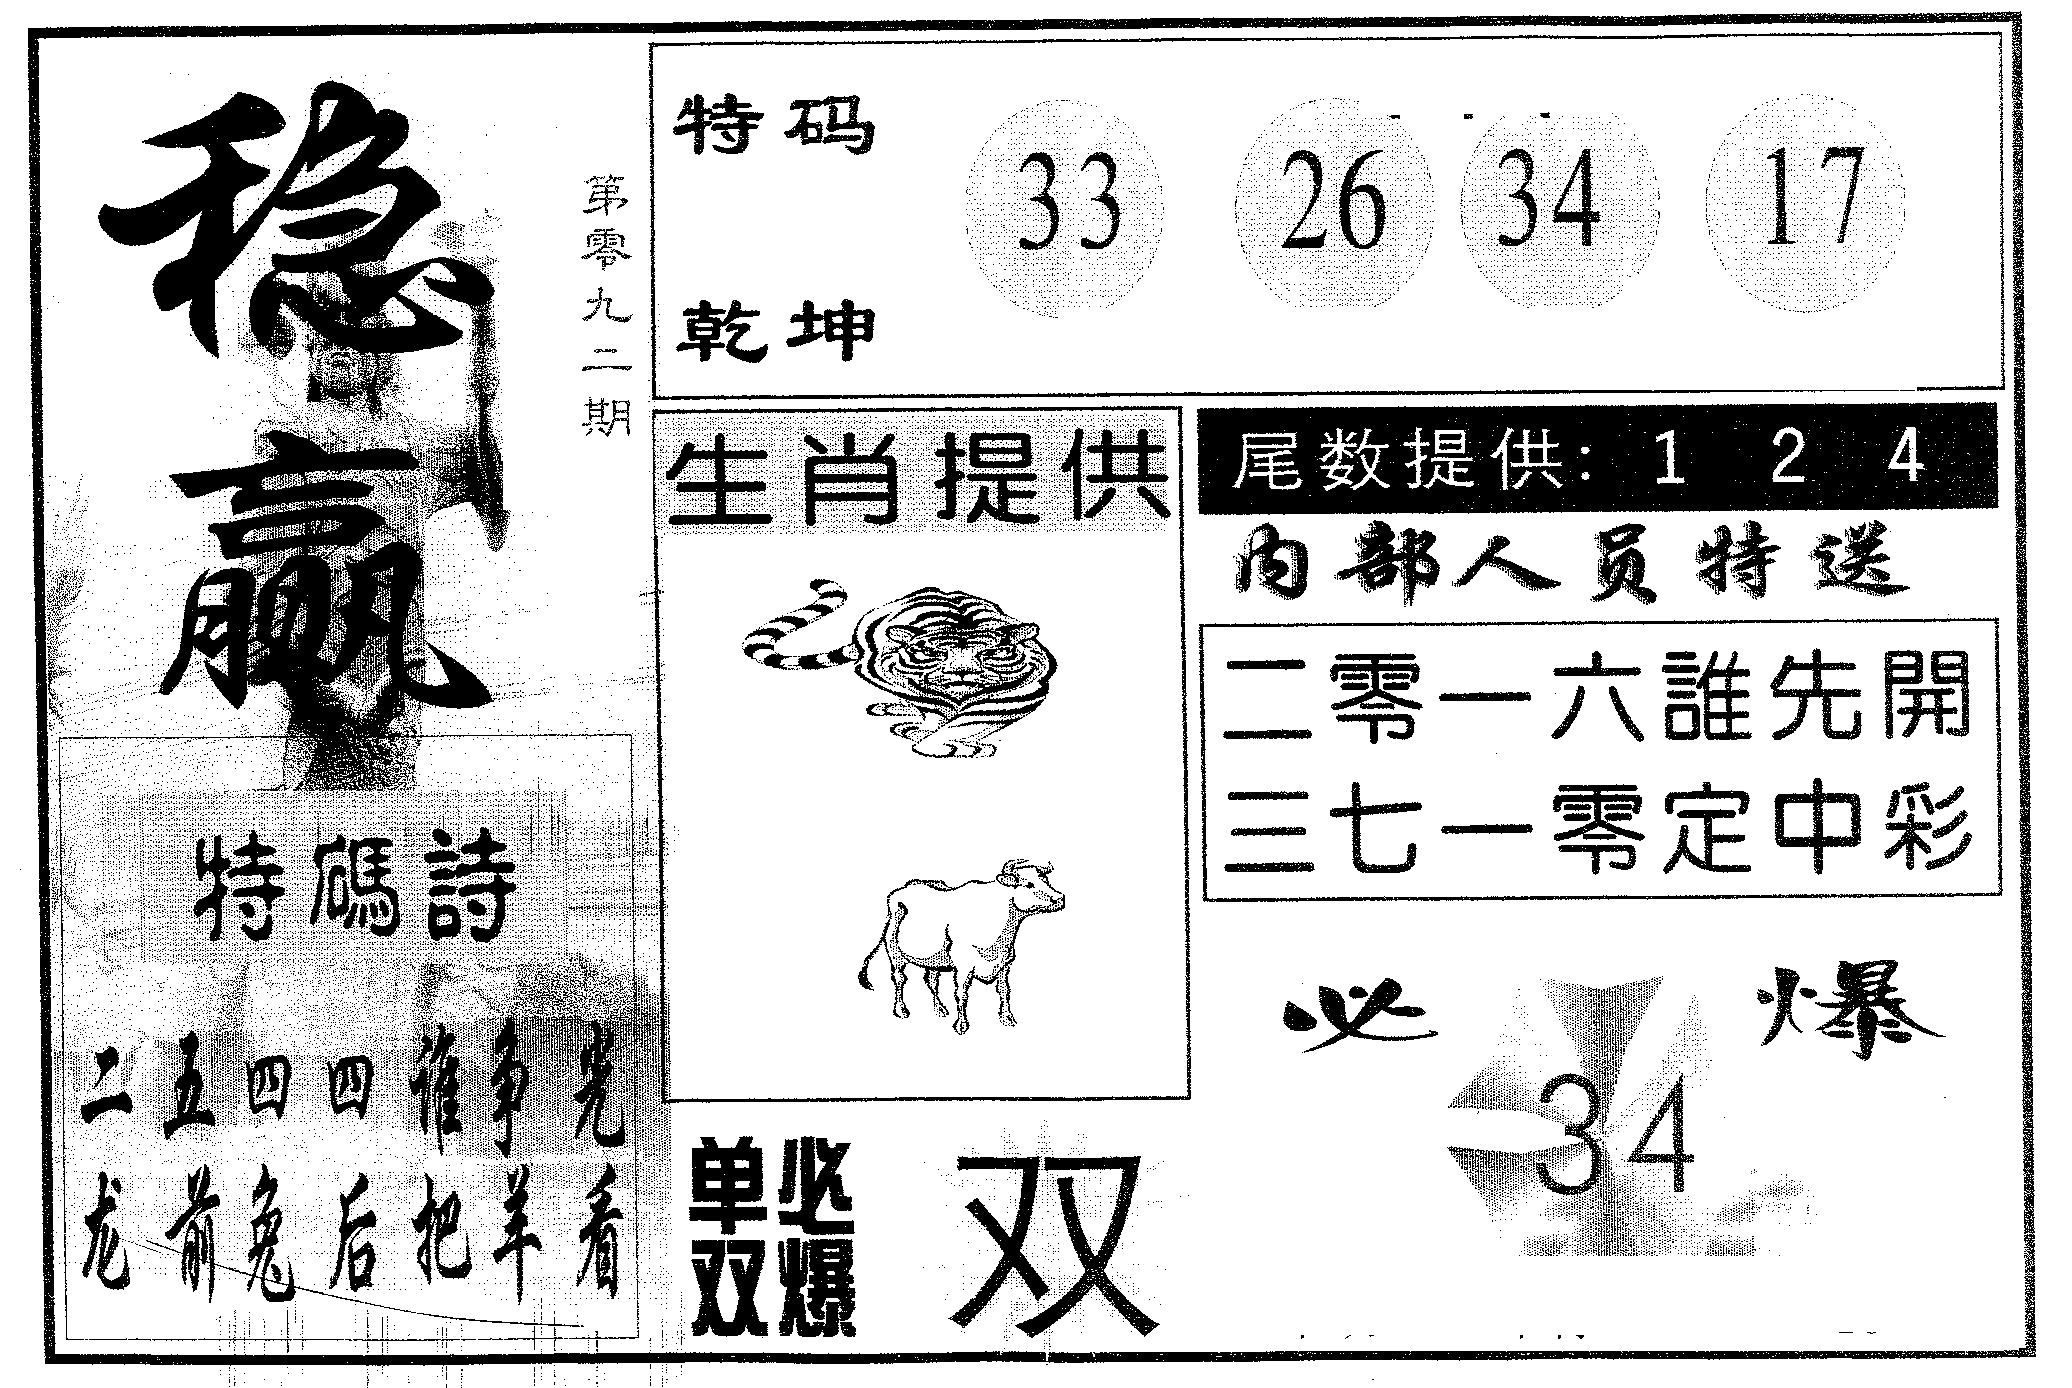 稳赢
第零九二期
特码
乾坤
33 26 34 17
生肖提供
尾数提供: 1 2 4
内部人员特送
二零一六誰先開
三七一零定中彩
特碼詩
二五四四谁争光
龙前兔后把羊看
单双
必爆
双
必爆
34